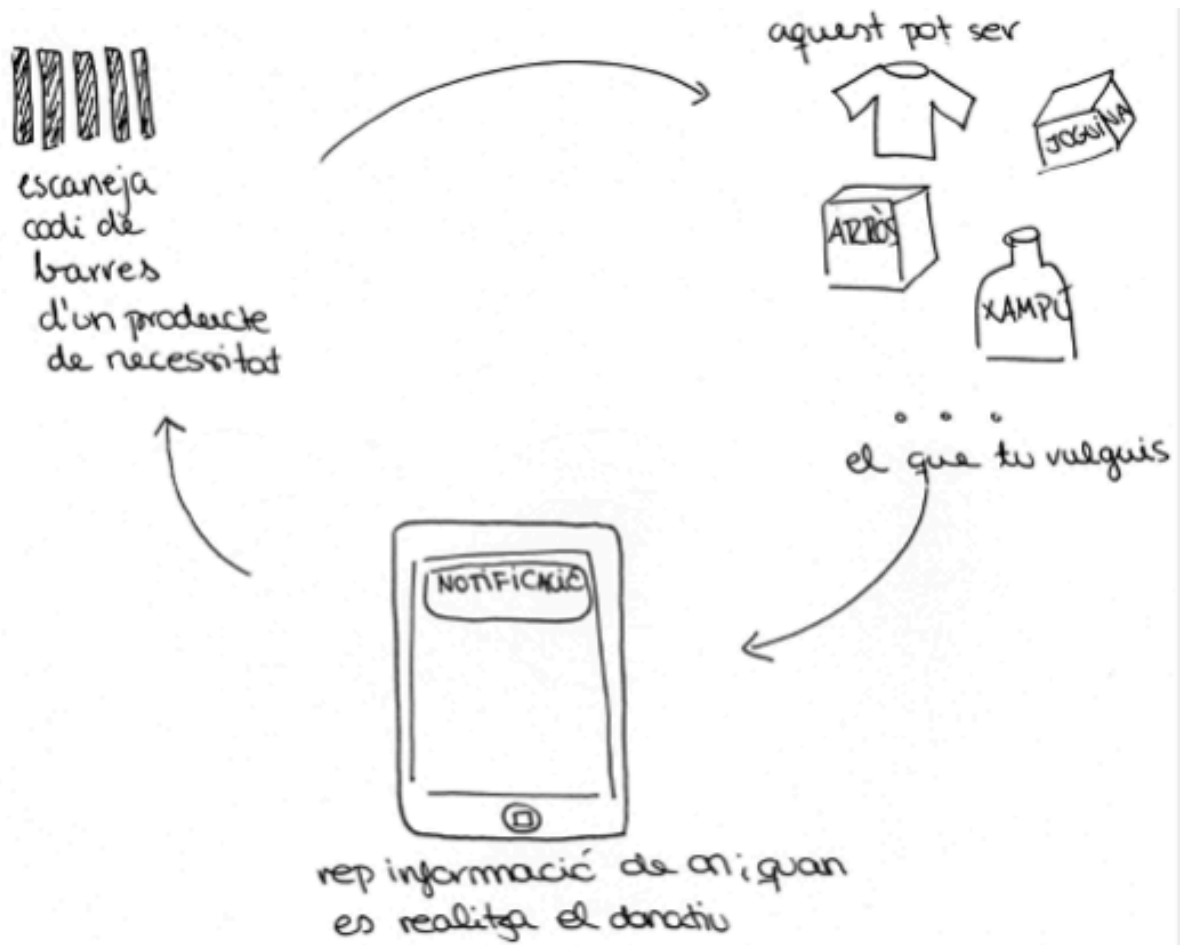 escaneja
codi de
barres
d'un producte
de necessitat
aquest pot ser
JOGUINA
ARRÒS
XAMPÚ
...
el que tu vulguis
NOTIFICACIÓ
rep informació de on i quan
es realitza el donatiu